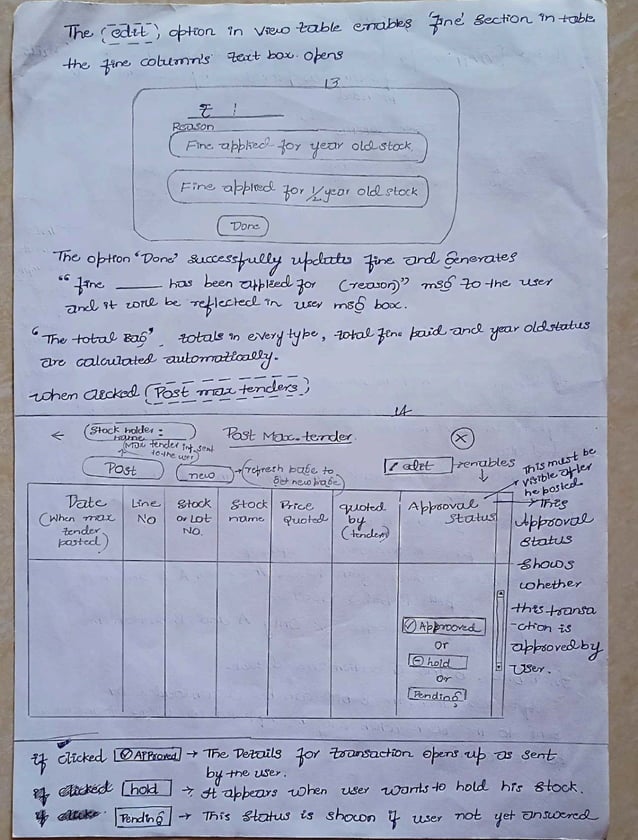 The (edit) option in view table enables 'fine' section in table
the fine column's text box opens
13
₹
Reason
Fine applied for year old stock
Fine applied for 1/2 year old stock
Done
The option 'Done' successfully updates fine and generates
"fine ____ has been applied for (reason)" msg to the user
and it will be reflected in user msg box.
"The total Bag", totals in every type, total fine paid and year old status
are calculated automatically.
when clicked (Post max tenders)
14
← Stock holder: Post Max. tender ⓧ
name
(Max tender inf. sent
to the user)
Post new → (refresh page to
get new page)
edit → enables
This must be
visible after
he posted
Date
(When max
tender
posted)
Line
No
Stock
or Lot
No.
Stock
name
Price
Quoted
quoted
by
(tender)
Approval
Status
→ This
Approval
status
shows
whether
this transa
ction is
approved by
user.
Approved
or
hold
or
Pending
if clicked Approved → The Details for transaction opens up as sent
by the user.
if clicked hold → It appears when user wants to hold his stock.
if clicke Pending → This Status is shown if user not yet answered